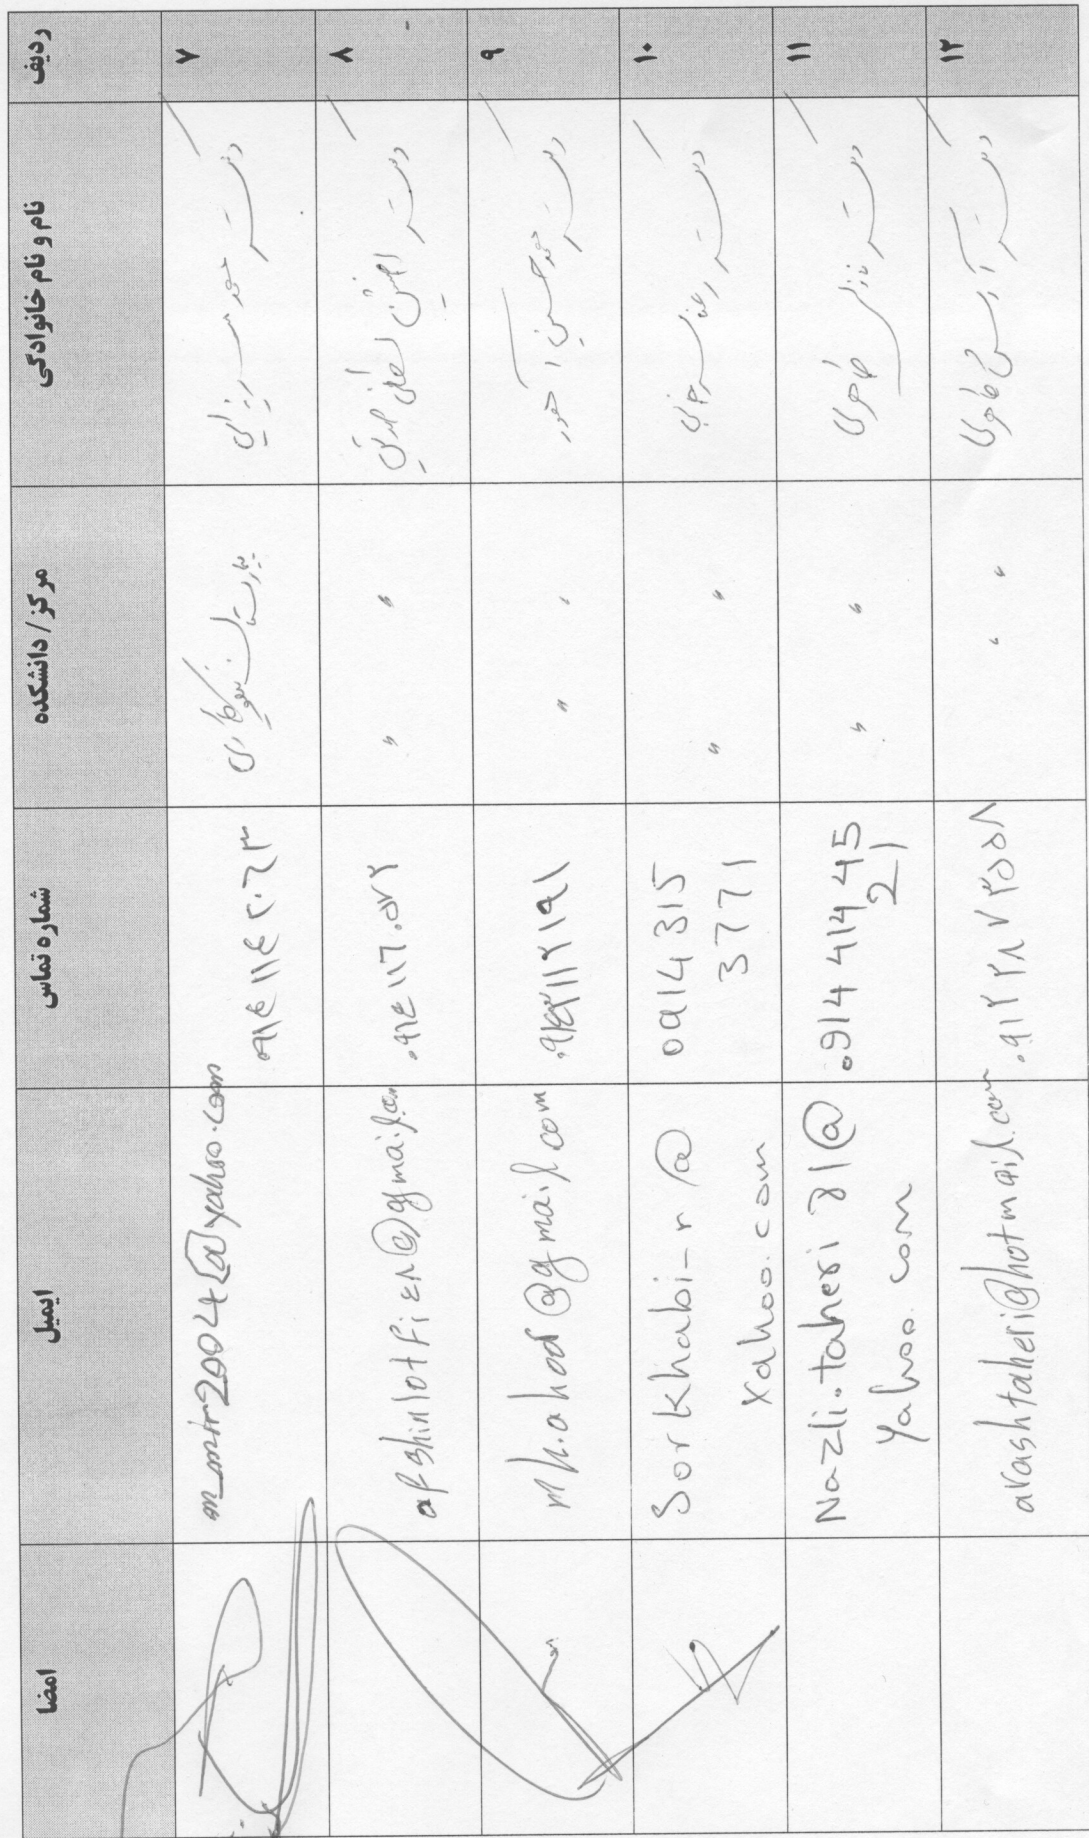 ردیف	نام و نام خانوادگی	مرکز / دانشکده	شماره تماس	ایمیل	امضا
۷	دکتر محمد میرزائی	بیمارستان نیکوکاری	m_mir2004@yahoo.com
۸	دکتر افشین لطفی صدیق	〃	〃	۰۹۱٤۱۱٦۰۵۲۲	afshinlotfi
۹	دکتر محمد حسین آهور	〃	〃	mh.ahoor@gmail.com
۱۰	دکتر رعنا سرخابی	〃	〃	0914 315
3771	Sorkhabi_r@
yahoo.com
۱۱	دکتر نازلی طاهری	〃	〃	0914 414 45
21	Nazli.taheri
Yahoo.com
۱۲	دکتر آرش طاهری	〃	〃	arashtaheri@hotmail.com